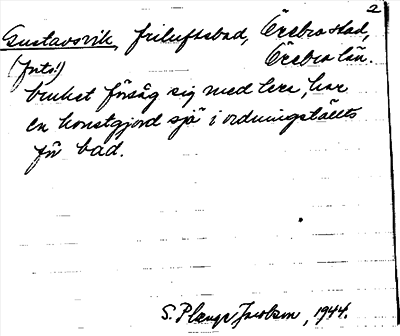 2
Gustavsvik, friluftsbad, Örebro stad,
(forts!) Örebro län.
bruket försåg sig med lera, har
en konstgjord sjö i ordningställts
för bad.
S. Plange Jacobson, 1944.